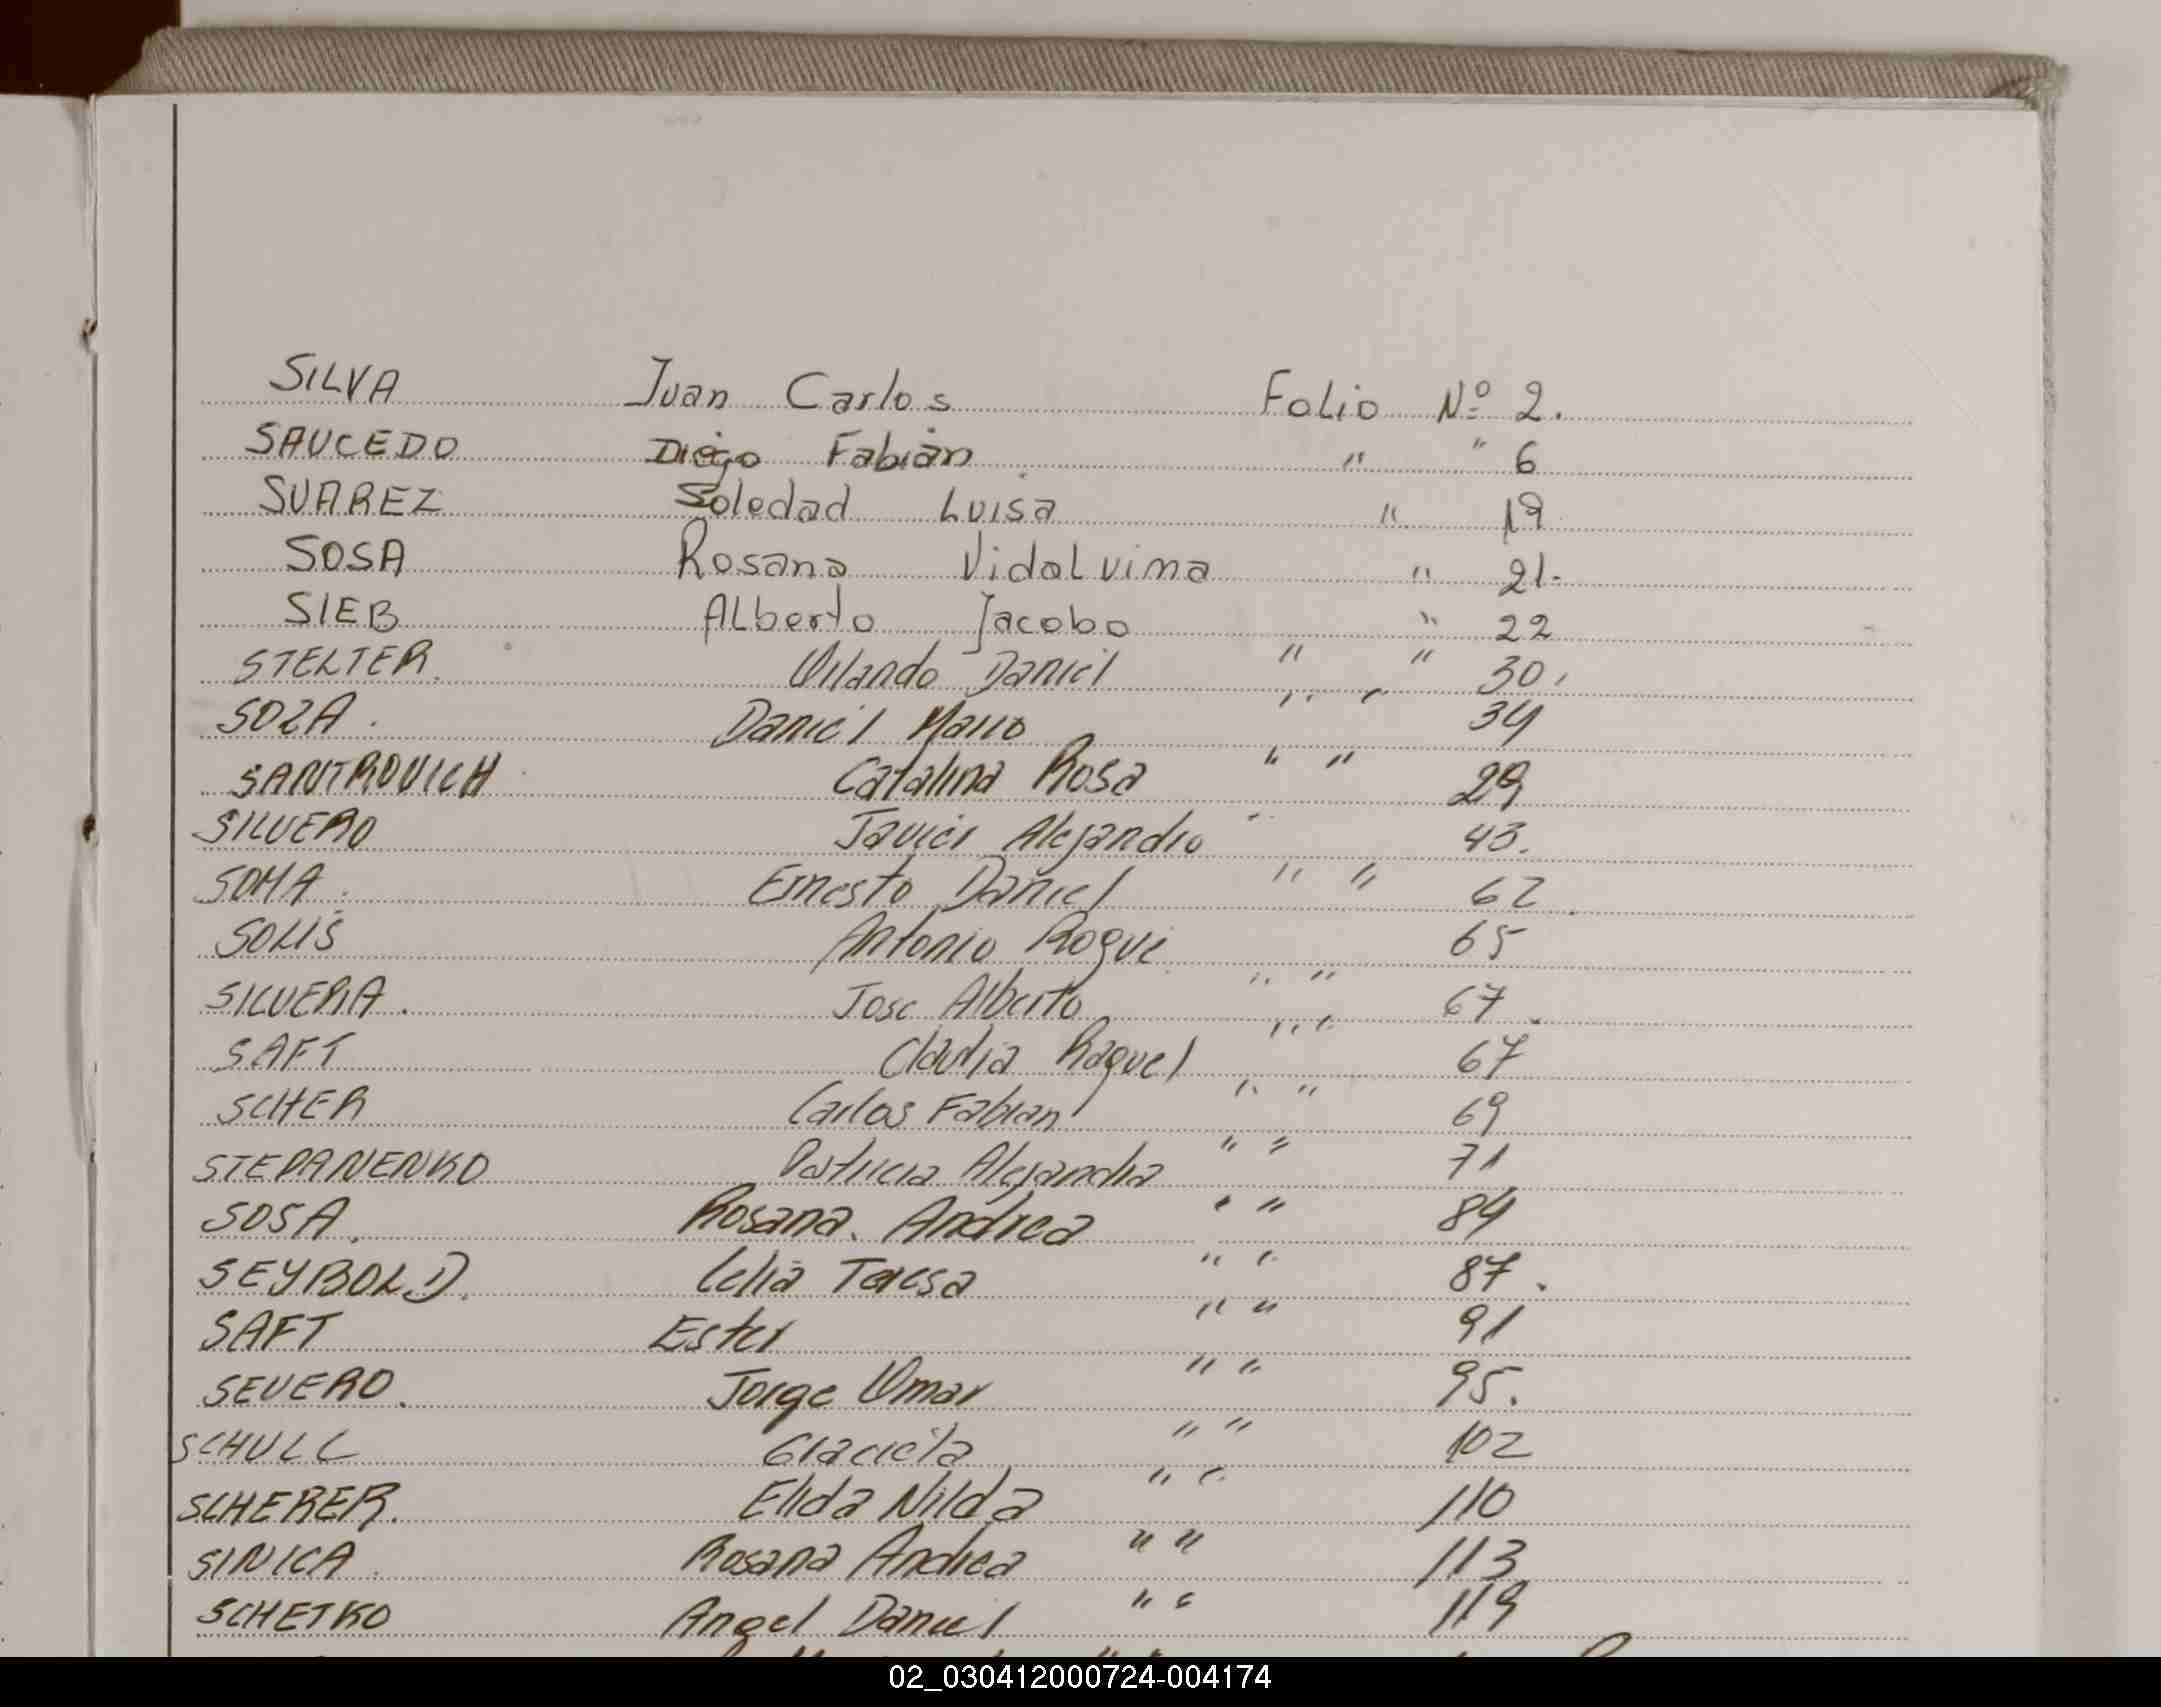 SILVA Juan Carlos Folio Nº 2.
SAUCEDO Diego Fabián " " 6
SUAREZ Soledad Luisa " 19
SOSA Rosana Vidalvina " 21.
SIEB ALberto Jacobo " 22
STELTER. Orlando Daniel " " 30.
SOZA. Daniel Mario " " 34
SANTROVICH Catalina Rosa " " 29
SILVERO Javier Alejandro " 43.
SOMA. Ernesto Daniel " " 62
SOLIS Antonio Roque 65
SILVERA. Jose Alberto " " 67.
SAFT Claudia Raquel " " 67
SCHER Carlos Fabian " " 69
STEPANENKO Patricia Alejandra " " 71
SOSA. Rosana. Andrea " " 84
SEYBOLD. Celia Teresa " " 87.
SAFT Ester " " 91
SEVERO. Jorge Omar " " 95.
SCHULL Graciela " " 102
SCHERER. Elida Nilda " " 110
SINICA. Rosana Andrea " " 113
SCHETKO Angel Daniel " " 119
02_030412000724-004174